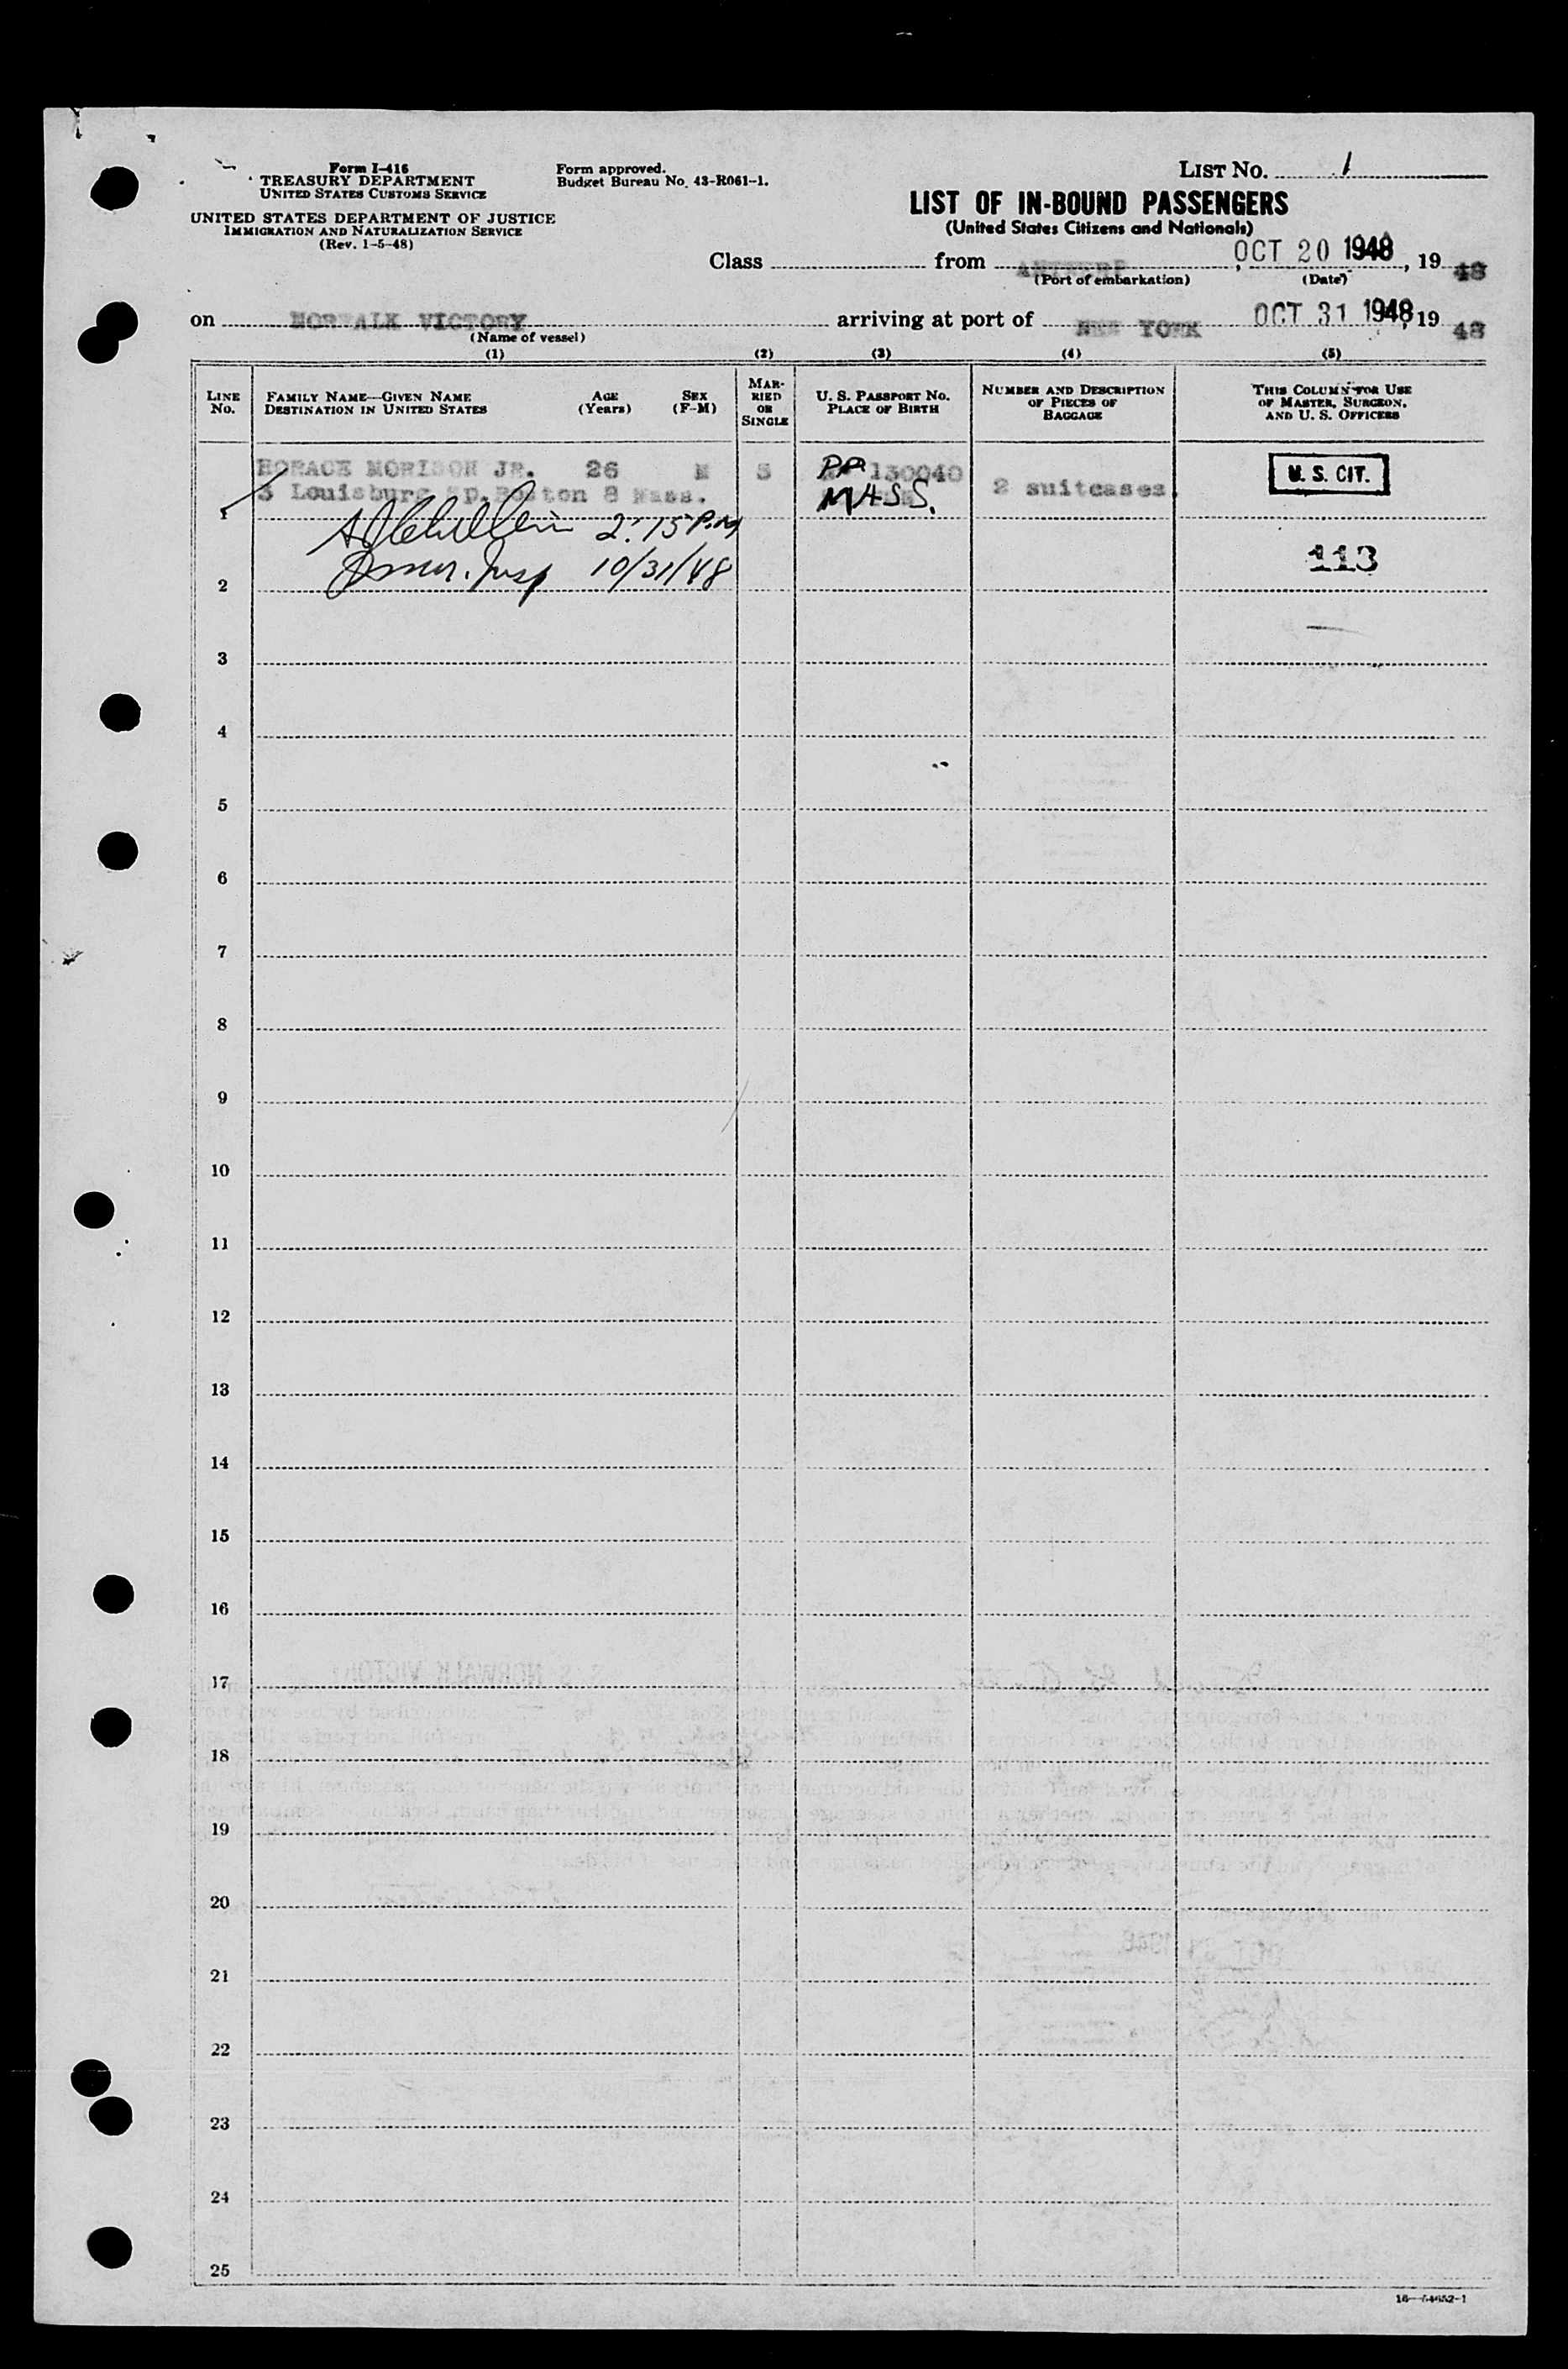 Form I-416
TREASURY DEPARTMENT
UNITED STATES CUSTOMS SERVICE
UNITED STATES DEPARTMENT OF JUSTICE
IMMIGRATION AND NATURALIZATION SERVICE
(Rev. 1-5-48)
Form approved.
Budget Bureau No. 43-R061-1.
LIST No. 1
LIST OF IN-BOUND PASSENGERS
(United States Citizens and Nationals)
Class from ANTWERP, OCT 20 1948, 19 48
(Port of embarkation) (Date)
on NORWALK VICTORY arriving at port of NEW YORK OCT 31 1948, 19 48
(Name of vessel)
(1) (2) (3) (4) (5)
LINE No.
FAMILY NAME—GIVEN NAME
DESTINATION IN UNITED STATES
AGE (Years)
SEX (F-M)
MARRIED OR SINGLE
U. S. PASSPORT No.
PLACE OF BIRTH
NUMBER AND DESCRIPTION OF PIECES OF BAGGAGE
THIS COLUMN FOR USE OF MASTER, SURGEON, AND U. S. OFFICERS
HORACE MORISON JR. 26 M S PP 130040 U. S. CIT.
3 Louisburg Sp. Boston 8 Mass. MASS. 2 suitcases.
1 2:15 P.M
113
2 Immr. Insp 10/31/48
3
4
5
6
7
8
9
10
11
12
13
14
15
16
17
18
19
20
21
22
23
24
25
16—54652-1